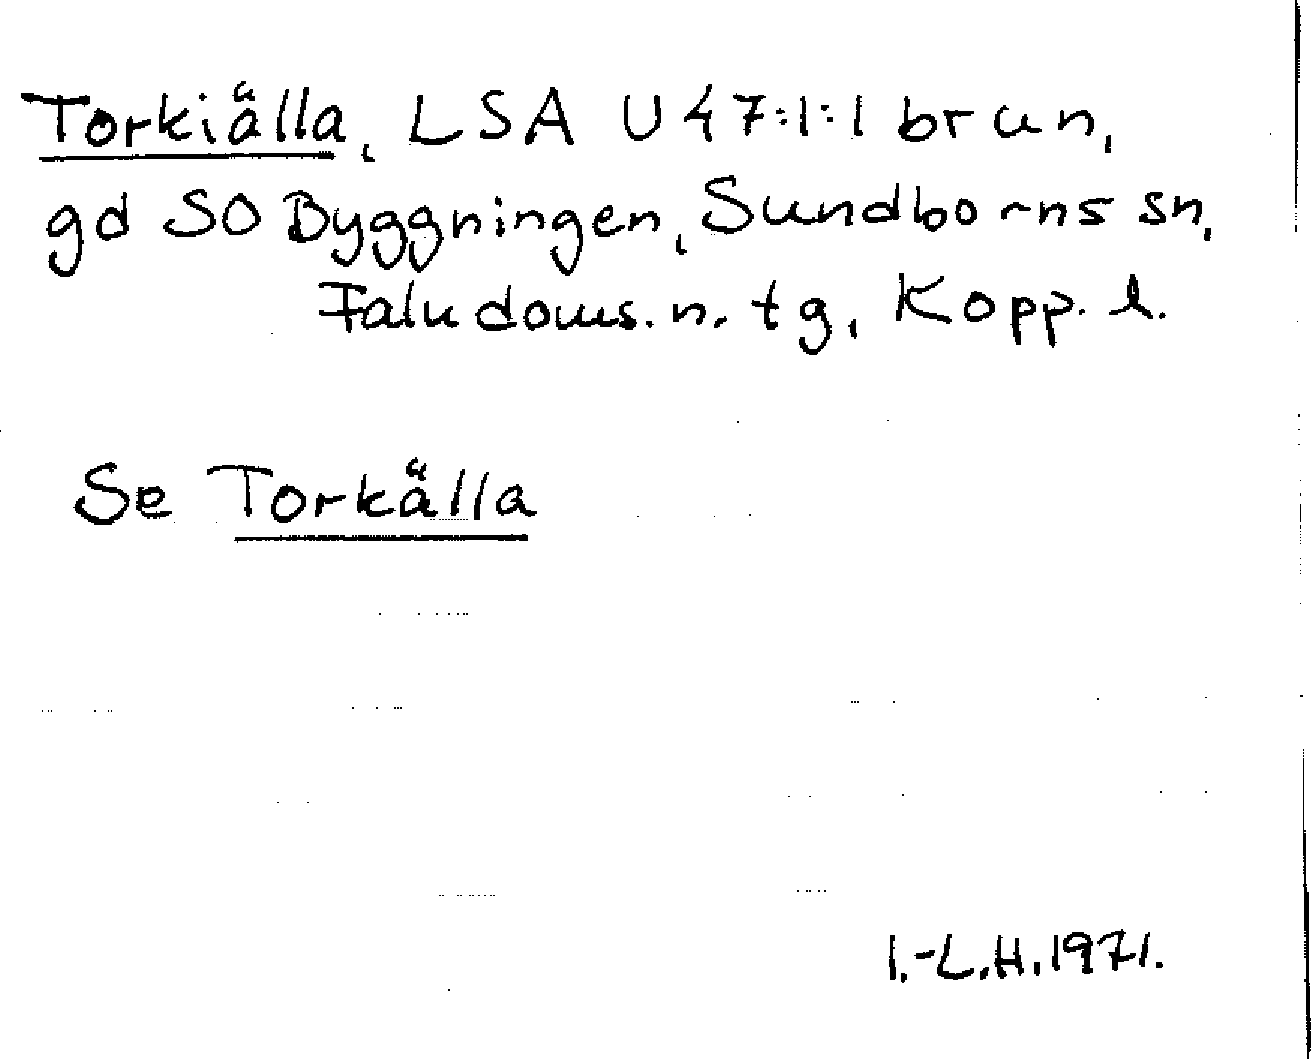 Torkiälla, LSA U47:1:1 brun,
gd SO Byggningen, Sundborns sn,
Falu doms. n. tg, Kopp. l.
Se Torkälla
I.-L.H. 1971.